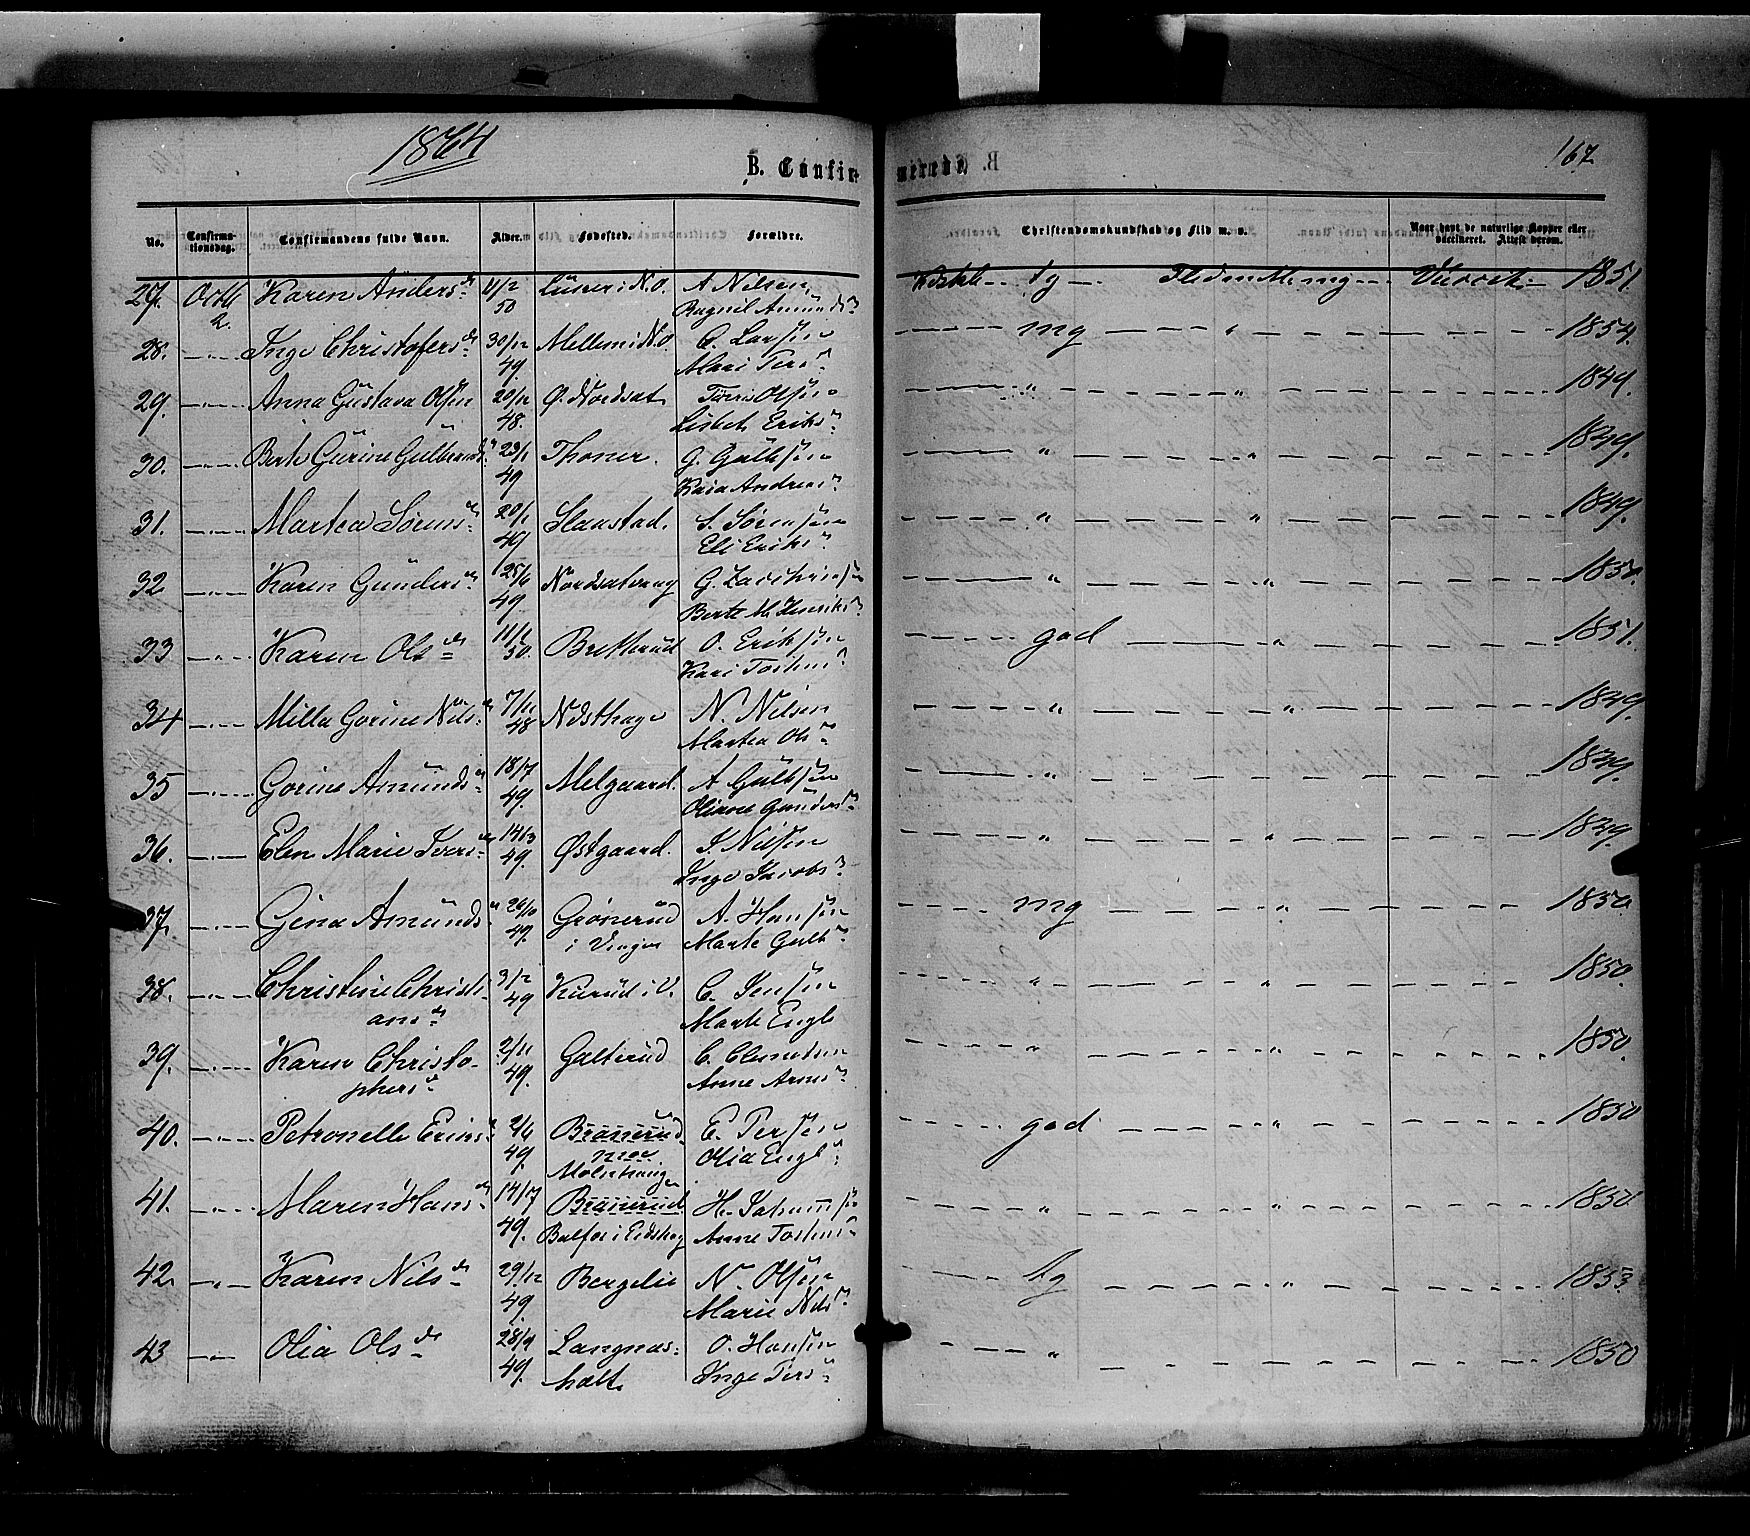 1864
B. Confir-
meréde.
167
No.
Confirma-
tionsdag.
Confirmandens fulde Navn.
Alder.
Fødested.
Forældre.
Christendomskundskab og Flid m. v.
Naar havt de naturlige Kopper eller
vaccineret. Attest derom.
27. Octb 2. Karen Anders d. 11/2 50 i N.O. A Nilsen Amunds
tg 1851.
28. Inge Christofers d. 30/12 49. Mellem i N.O. C. Larsen Mari Pers
mg 1854.
29. Anna Gustava Olsen 20/12 48. Ø. Nordsat Olsen Lisbet Eriks
" 1849.
30. Berte Gurine Gulbrands 23/1 49 Thoner. G. Gulbsen Kaia Andreas
" 1849.
31. Martea Sørens d. 20/1 49 Slaastad. S. Sørensen Eli Eriks
" 1849.
32 Karen Gunders d. 25/6 49. G. Berte M. Henriks
" 1850
33 Karen Ols d. 11/2 50. Bretterud O. Eriksen Kari Tostens
god 1851.
34 Milla Gorine Nils d. 7/11 48 N. Nilsen Martea Ols
" 1849.
35 Gorine Amunds d. 18/7 49. Melgaard. A Gulbsen Oliane Gunders
" 1849.
36. Elen Marie Ivers d. 14/3 49. Østgaard. I. Nilsen Inge Jacobs
" 1849.
37. Gina Amunds 26/10 49. Grønerud i Vinger A. Hansen Marte Gulb
mg 1850.
38. Christine Christi-
ans d. 3/12 49 Kurud i V. C. Jensen Marte Engb
" 1850.
39. Karen Christo-
phers d. 2/11 49. Galterud C. Anne Arnes
" 1850.
40. Petronelle 2/6 49. Branerud E. Persen Olia Engb
god 1850
41. Maren Hans d. 14/7 49. Branerud i Eidskog H. Anne Tostens
" 1850
42. Karen Nils d. 29/12 49. Bergelie N. Olsen Marie Nils
tg 1853.
43 Olia Ols d. 28/9 49. Langnæs-
holt O. Hansen Inge Pers
" 1850